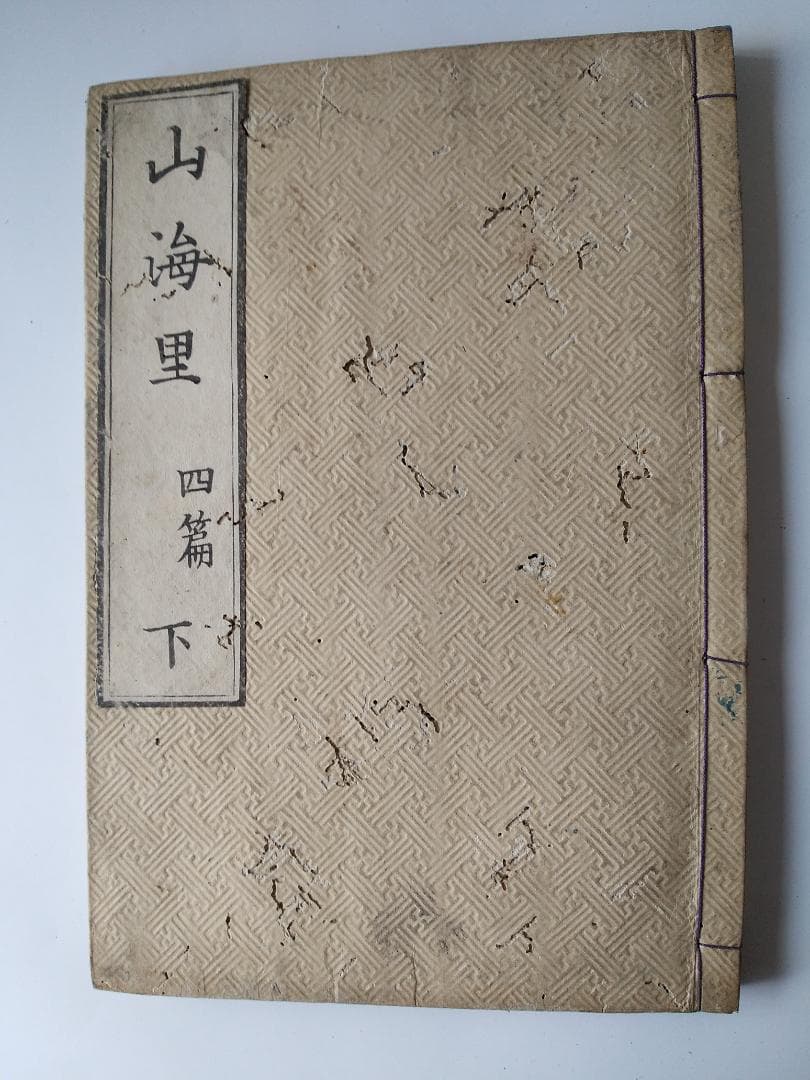 山海里
四篇
下